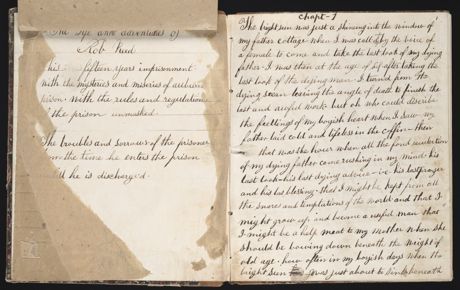 The life and adventures of
Rob Reed
his fifteen years imprisonment
with the mysteries and miseries of auburn
prison. with the rules and regulations
the prison unmasked
The troubles and sorrows of the prisoner
the time he enters the prison
he is discharged.
Chapt - 1
The bright sun was just a shineing into the window of
my father cottage when I was called by the bird of
a female to come and take the last look of my dying
father. I was then at the age of six after taking the
last look of the dieing man. I turned from the
dying man leaveing the angle of death to finish the
last and awful work but oh who could describe
the feellings of my boyish heart when I saw my
father laid cold and lifeless in the coffin then
that was the hour when all the fond recollection
of my dying father came rushing in my mind his
last look his last dying advice his last prayer
and his last blessing that I might be kept from all
the snares and temptations of the world and that I
might grow up and become a useful man that
I might be a help meat to my mother when she
should be bowing down beneath the weight of
old age. how often in my boyish days when the
bright sun was just about to sink beneath